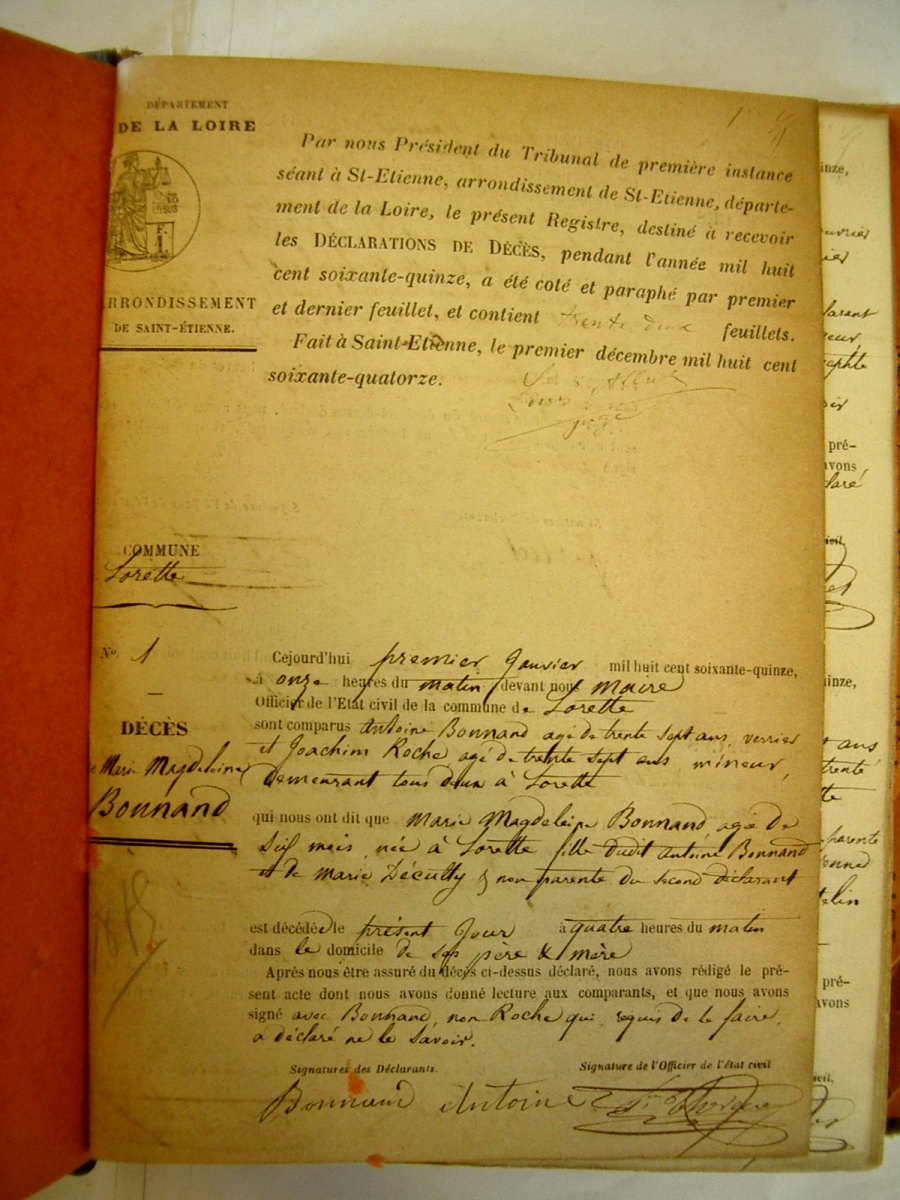 DÉPARTEMENT
DE LA LOIRE
RRONDISSEMENT
DE SAINT-ÉTIENNE.
Par nous Président du Tribunal de première instance
séant à St-Etienne, arrondissement de St-Etienne, départe-
ment de la Loire, le présent Registre, destiné à recevoir
les DÉCLARATIONS DE DÉCÈS, pendant l'année mil huit
cent soixante-quinze, a été coté et paraphé par premier
et dernier feuillet, et contient trente deux feuillets.
Fait à Saint-Etienne, le premier décembre mil huit cent
soixante-quatorze.
juge
COMMUNE
Lorette
No. 1
DÉCÈS
Marie Magdeleine
Bonnand
1875
Cejourd'hui premier Janvier mil huit cent soixante-quinze,
à onze heures du matin devant nous Maire
Officier de l'Etat civil de la commune de Lorette
sont comparus Antoine Bonnand agé de trente sept ans, verrier
et Joachim Roche agé de trente sept ans mineur,
demeurant tous deux à Lorette
qui nous ont dit que Marie Magdeleine Bonnand, agée de
Six mois, née à Lorette fille dudit Antoine Bonnand
et de Marie Décultty & non parente du second déclarant
est décédée le présent Jour à quatre heures du matin
dans le domicile de ses père & mère
Après nous être assuré du décès ci-dessus déclaré, nous avons rédigé le pré-
sent acte dont nous avons donné lecture aux comparants, et que nous avons
signé avec Bonnand, non Roche qui, requis de le faire,
a déclaré ne le Savoir.
Signatures des Déclarants.
Signature de l'Officier de l'état civil
Bonnand Antoine
inze,
larant
pré-
avons
laré
inze,
ans
parente
pré-
avons